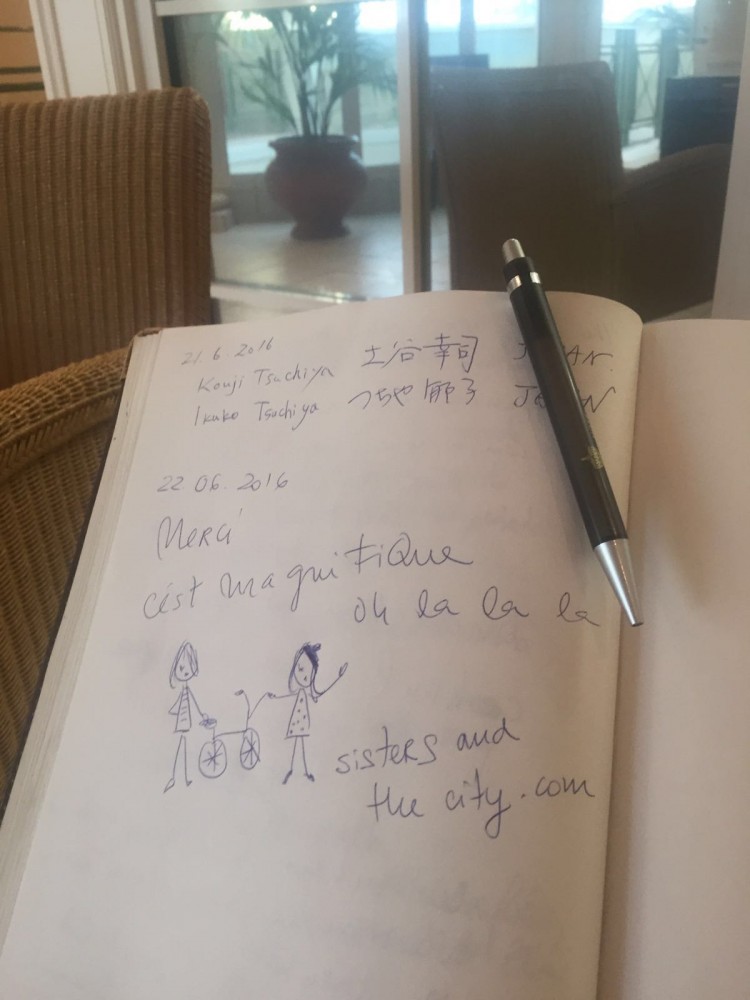 21.6.2016
Kouji Tsuchiya 土谷幸司 JAPAN
Ikuko Tsuchiya つち也 郁子 JAPAN
22.06.2016
Merci
c'est magnifique
oh la la la
sisters and
the city.com